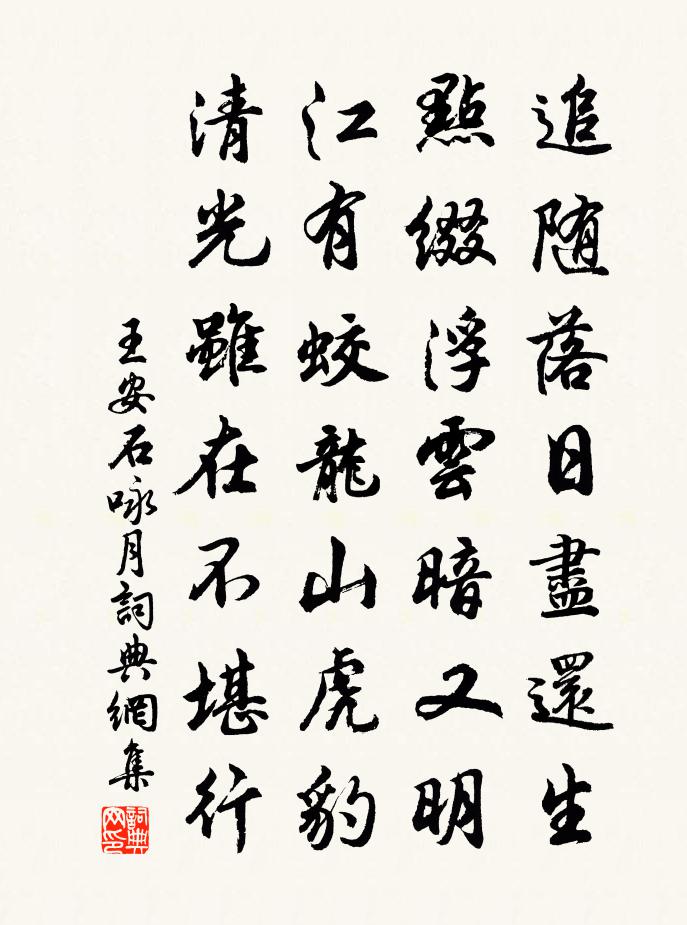 追随落日盡還生
點綴浮雲暗又明
江有蛟龍山虎豹
清光雖在不堪行
王安石咏月詞典網集
詞典網印